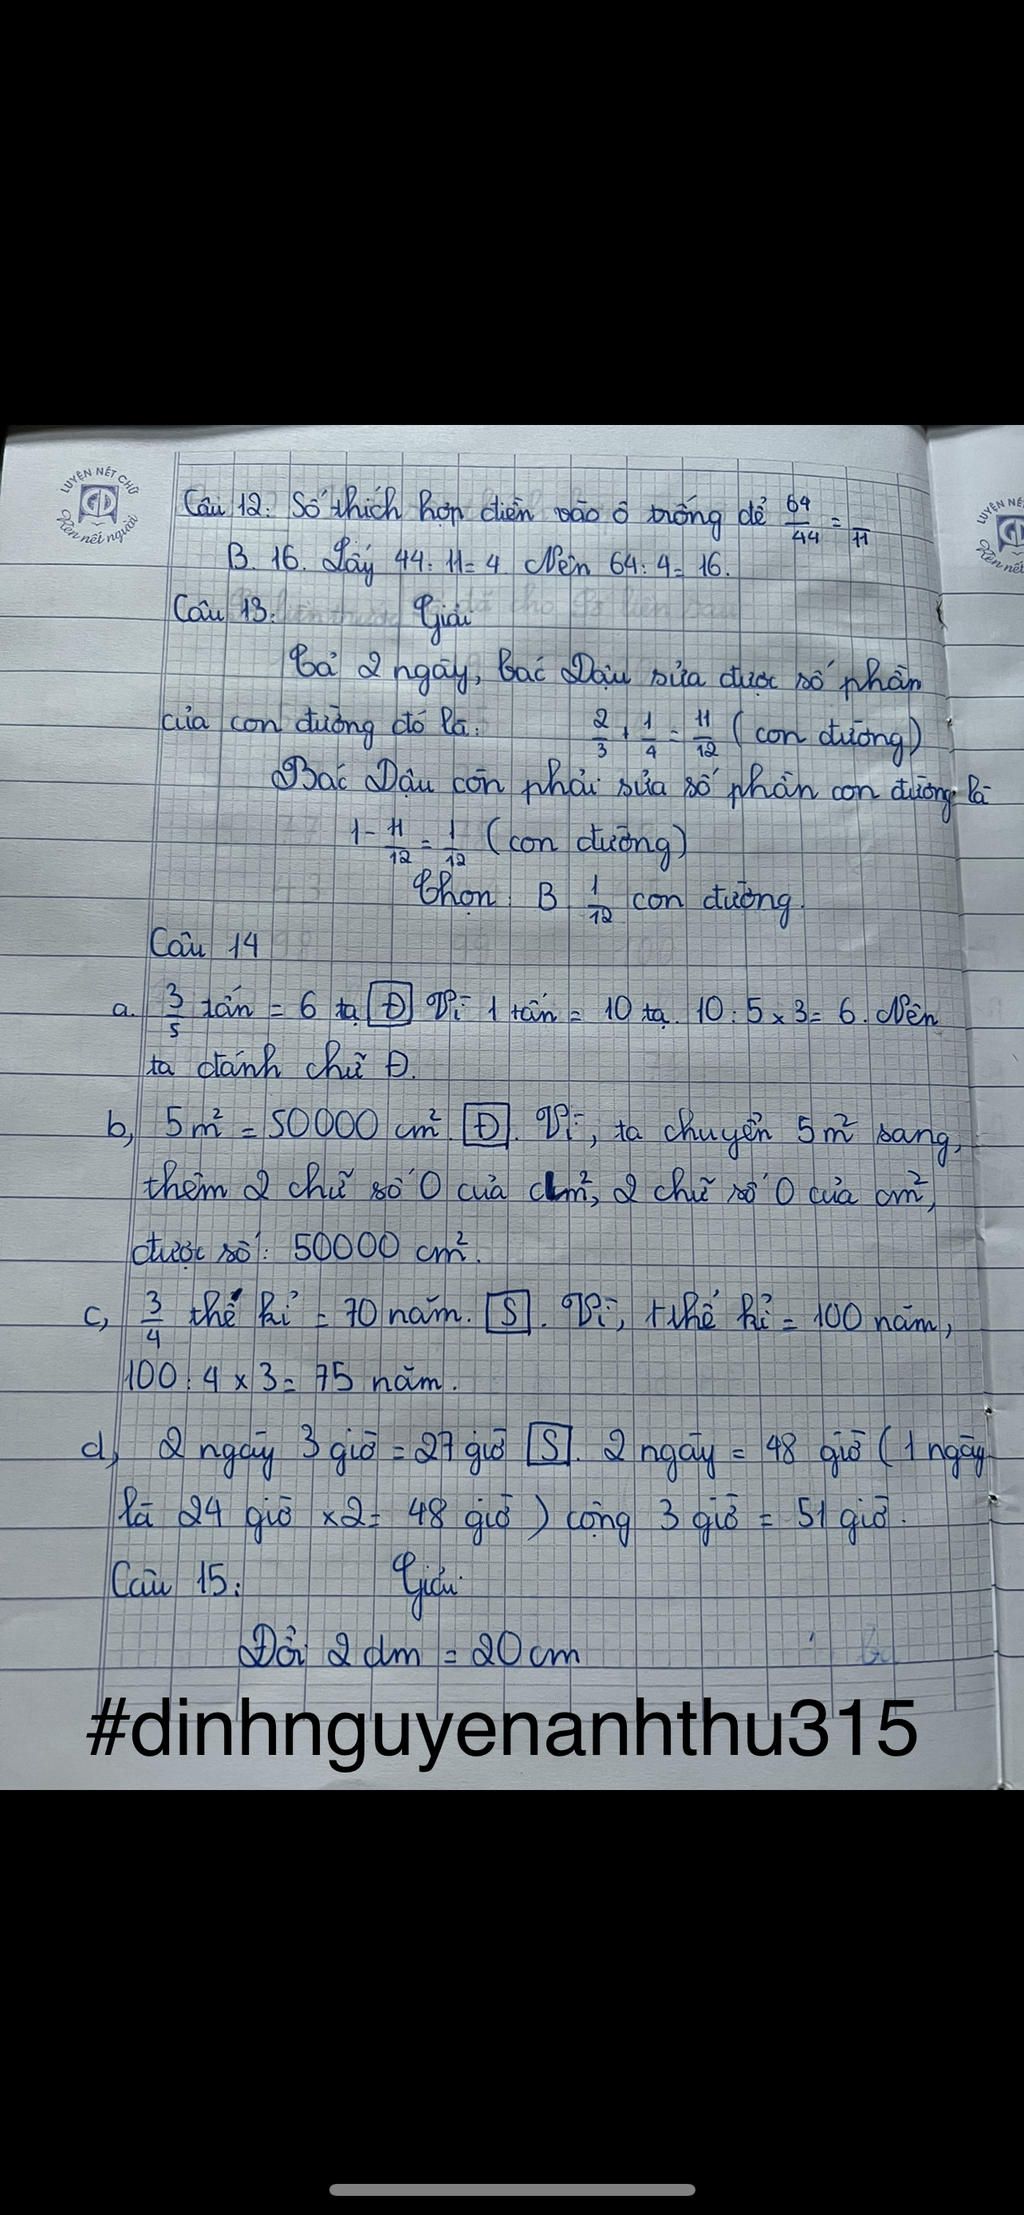 LUYỆN NÉT CHỮ
Rèn nết người
LUYỆN NÉ
Rèn nết
Câu 12: Số thích hợp điền vào ô trống để 64/44 = /11
B. 16. Lấy 44 : 11 = 4. Nên 64 : 4 = 16.
Câu 13: Giải
Cả 2 ngày, bác Dậu sửa được số phần
của con đường đó là: 2/3 + 1/4 = 11/12 (con đường)
Bác Dậu còn phải sửa số phần con đường là
1 - 11/12 = 1/12 (con đường)
Chọn B 1/12 con đường.
Câu 14
a. 3/5 tấn = 6 tạ Đ Vì 1 tấn = 10 tạ. 10 : 5 x 3 = 6. Nên
ta đánh chữ Đ.
b, 5m² = 50000 cm². Đ. Vì, ta chuyển 5m² sang,
thêm 2 chữ số 0 của dm², 2 chữ số 0 của cm²,
được số: 50000 cm².
c, 3/4 thế kỉ = 70 năm. S. Vì, 1 thế kỉ = 100 năm,
100 : 4 x 3 = 75 năm.
d, 2 ngày 3 giờ = 27 giờ S. 2 ngày = 48 giờ (1 ngày
là 24 giờ x 2 = 48 giờ) cộng 3 giờ = 51 giờ.
Câu 15: Giải
Đổi 2 dm = 20 cm
#dinhnguyenanhthu315